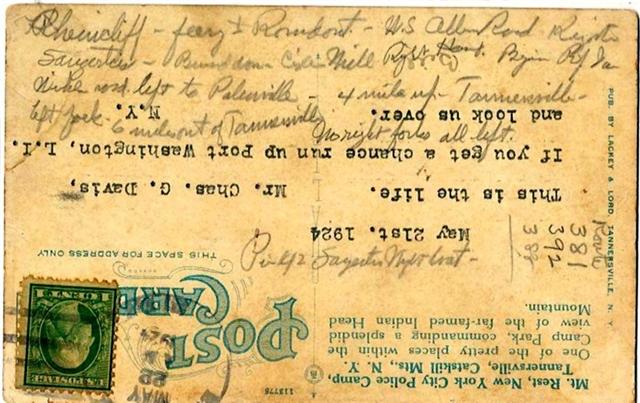 Mt. Rest, New York City Police Camp,
Tannersville, Catskill Mts., N. Y.
One of the pretty places within the
Camp Park, commanding a splendid
view of the far-famed Indian Head
Mountain.
113775
POST
CARD
THIS SPACE FOR ADDRESS ONLY
May 21st. 1924
This is the life.
If you get a chance run up
and look us over.
Mr. Chas. G. Davis,
Port Washington, L.I.
N.Y.
PUB. BY LACKEY & LORD, TANNERSVILLE, N. Y.
U.S. POSTAGE
1 CENT 1
MAY
22
1924
Rhinecliff - ferry Rondout - Road
Saugerties - Mill Right
road left to Palenville - 4 mile up - Tannersville -
left fork - 6 miles out of Tannersville
No right forks all left.
Route
381
392
382
Saugerties